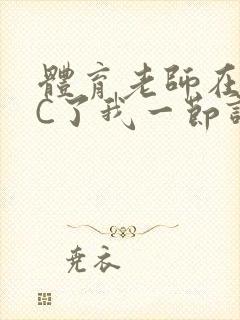 體育老師在
C了我一節
尭衣